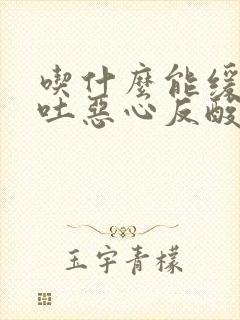 喫什麼能緩
吐惡心反酸
玉宇青檬